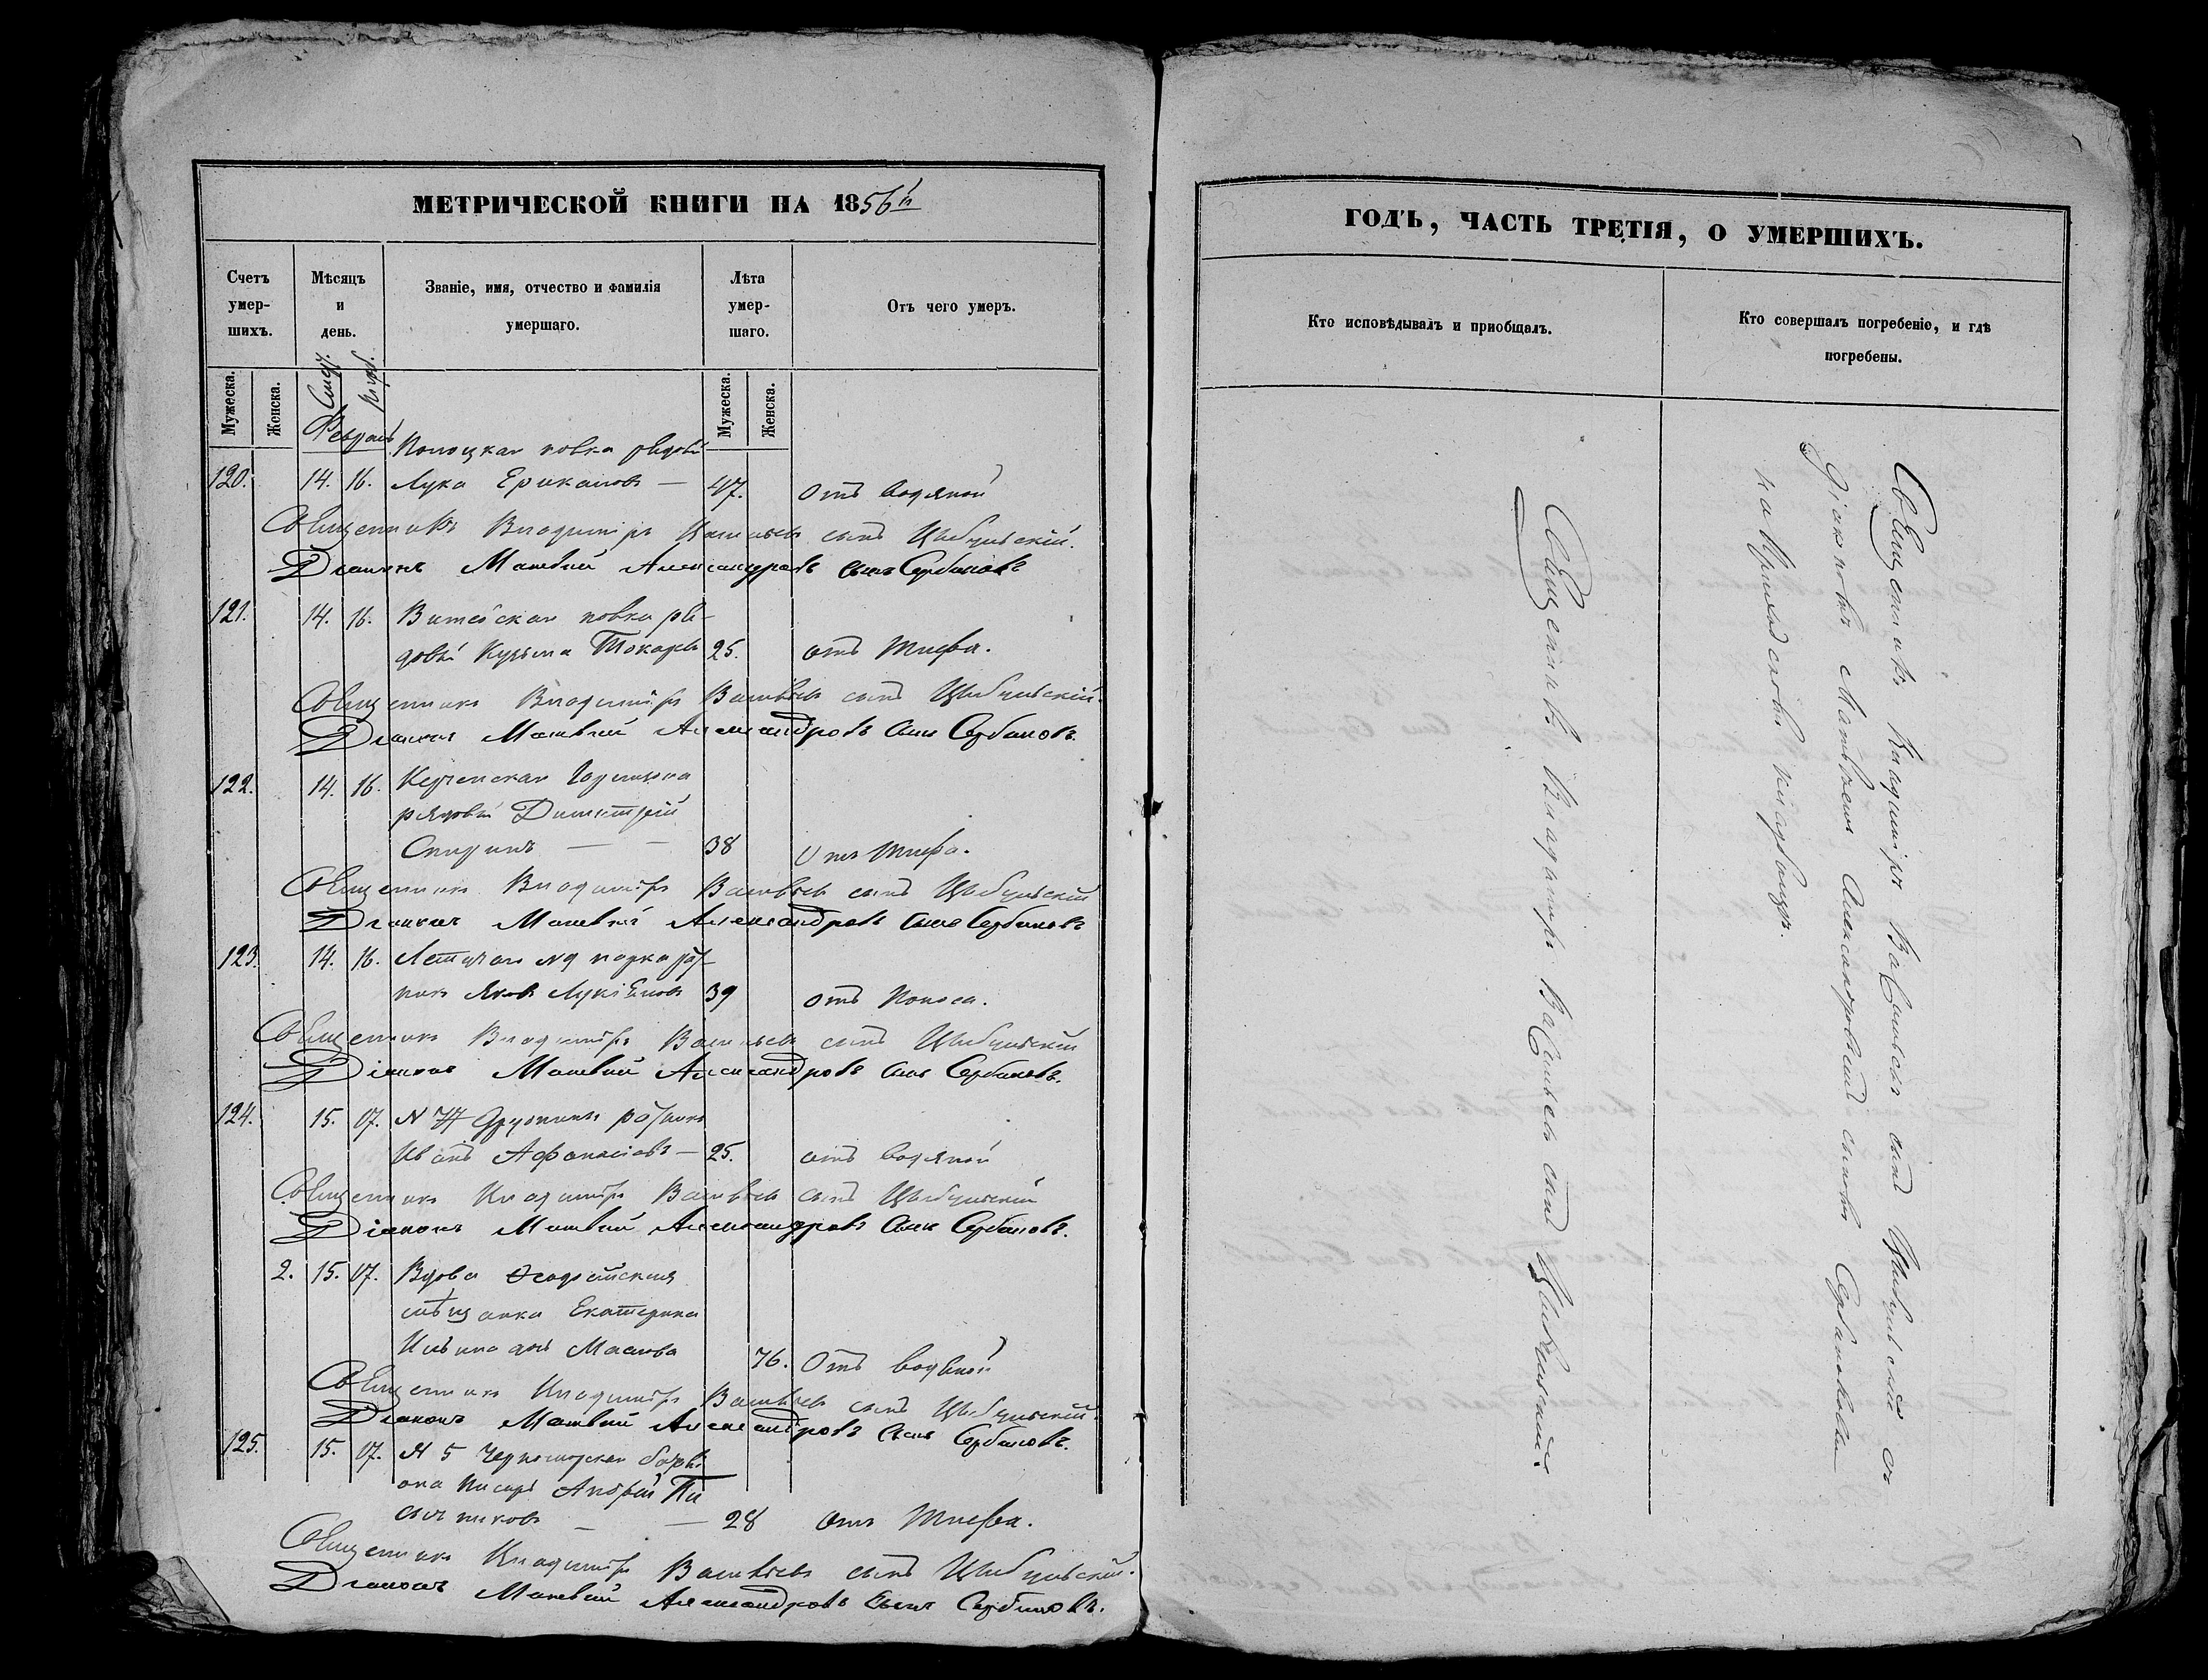 МЕТРИЧЕСКОЙ КНИГИ НА 1856й
Счетъ умер-шихъ.
Мѣсяцъ и день.
Званіе, имя, отчество и фамилія умершаго.
Лѣта умер-шаго.
Отъ чего умеръ.
Мужеска.
Женска.
Смер.
погр.
Мужеска.
Женска.
Февраль
Полоцкаго полка рядовый
120. 14. 16. Лука — 47. отъ водяной
Священникъ Владиміръ Васильевъ сынъ Цыбульскій.
Діаконъ Матвей Александровъ сынъ Сербиновъ
121. 14. 16. Витебскаго полка ря-
довый Кузьма Токаревъ 25. отъ тифа.
Священникъ Владиміръ Васильевъ сынъ Цыбульскій.
Діаконъ Матвей Александровъ сынъ Сербиновъ.
122. 14. 16. Керченскаго
рядовый Димитрій
Спиринъ — — 38 отъ тифа.
Священникъ Владиміръ Васильевъ сынъ Цыбульскій
Діаконъ Матвей Александровъ сынъ Сербиновъ
123. 14. 16. парка
Яковъ 39 отъ поноса.
Священникъ Владиміръ Васильевъ сынъ Цыбульскій
Діаконъ Матвей Александровъ сынъ Сербиновъ.
124. 15. 17. N 74 дружины ратникъ
Иванъ Афанасіевъ — 25. отъ водяной
Священникъ Владиміръ Васильевъ сынъ Цыбульскій
Діаконъ Матвей Александровъ сынъ Сербиновъ.
2. 15. 17. Вдова Ѳеодосійская
мѣщанка Екатерина
Маслова 76. Отъ водяной
Священникъ Владиміръ Васильевъ сынъ Цыбульскій.
Діаконъ Матвей Александровъ сынъ Сербиновъ.
125. 15. 17. N 5 Черноморскаго баталі-
она писарь Андрей
— — 28 отъ тифа.
Священникъ Владиміръ Васильевъ сынъ Цыбульскій.
Діаконъ Матвей Александровъ сынъ Сербиновъ.
ГОДЪ, ЧАСТЬ ТРЕТІЯ, О УМЕРШИХЪ.
Кто исповѣдывалъ и пріобщалъ.
Кто совершалъ погребеніе, и гдѣ погребены.
Священникъ Владиміръ Васильевъ сынъ Цыбульскій.
Священникъ Владиміръ Васильевъ сынъ Цыбульскій съ
Діакономъ Матвеемъ Александровымъ сыномъ Сербиновымъ
на кладбищѣ.